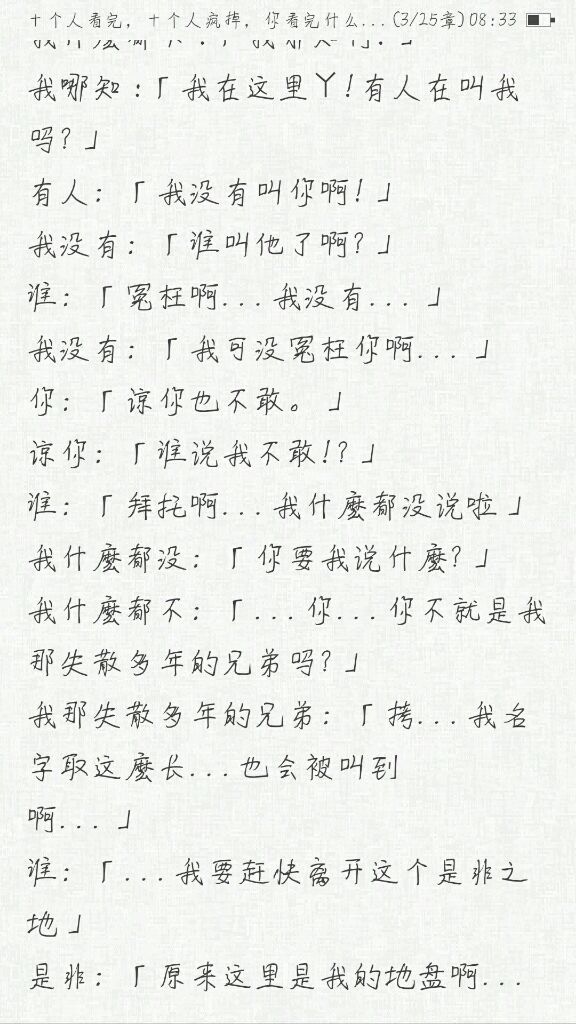 十个人看完，十个人疯掉，你看完什么...(3/25章)08:33
我哪知：「我在这里丫!有人在叫我
吗?」
有人：「我没有叫你啊!」
我没有：「谁叫他了啊?」
谁：「冤枉啊...我没有...」
我没有：「我可没冤枉你啊...」
你：「谅你也不敢。」
谅你：「谁说我不敢!?」
谁：「拜托啊...我什麼都没说啦」
我什麼都没：「你要我说什麼?」
我什麼都不：「...你...你不就是我
那失散多年的兄弟吗?」
我那失散多年的兄弟：「拷...我名
字取这麼长...也会被叫到
啊...」
谁：「...我要赶快离开这个是非之
地」
是非：「原来这里是我的地盘啊...